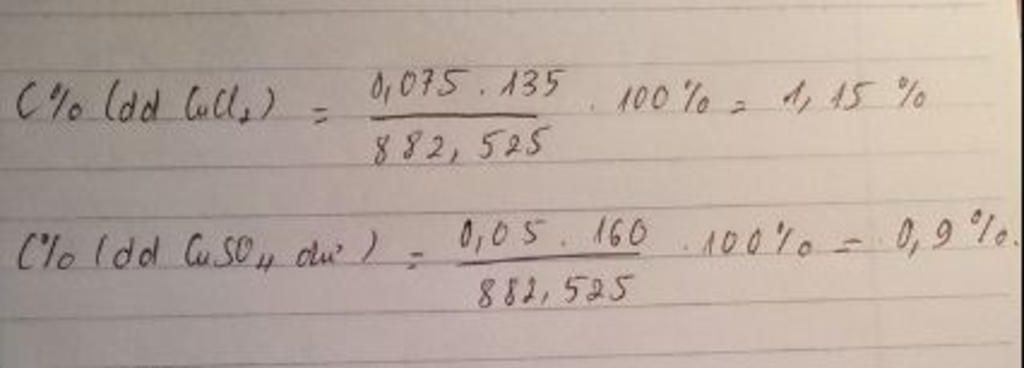 C% (dd CuCl₂) = 0,075 . 135 / 882,525 . 100% = 1,15 %
C% (dd CuSO₄ dư) = 0,05 . 160 / 882,525 . 100% = 0,9 %.